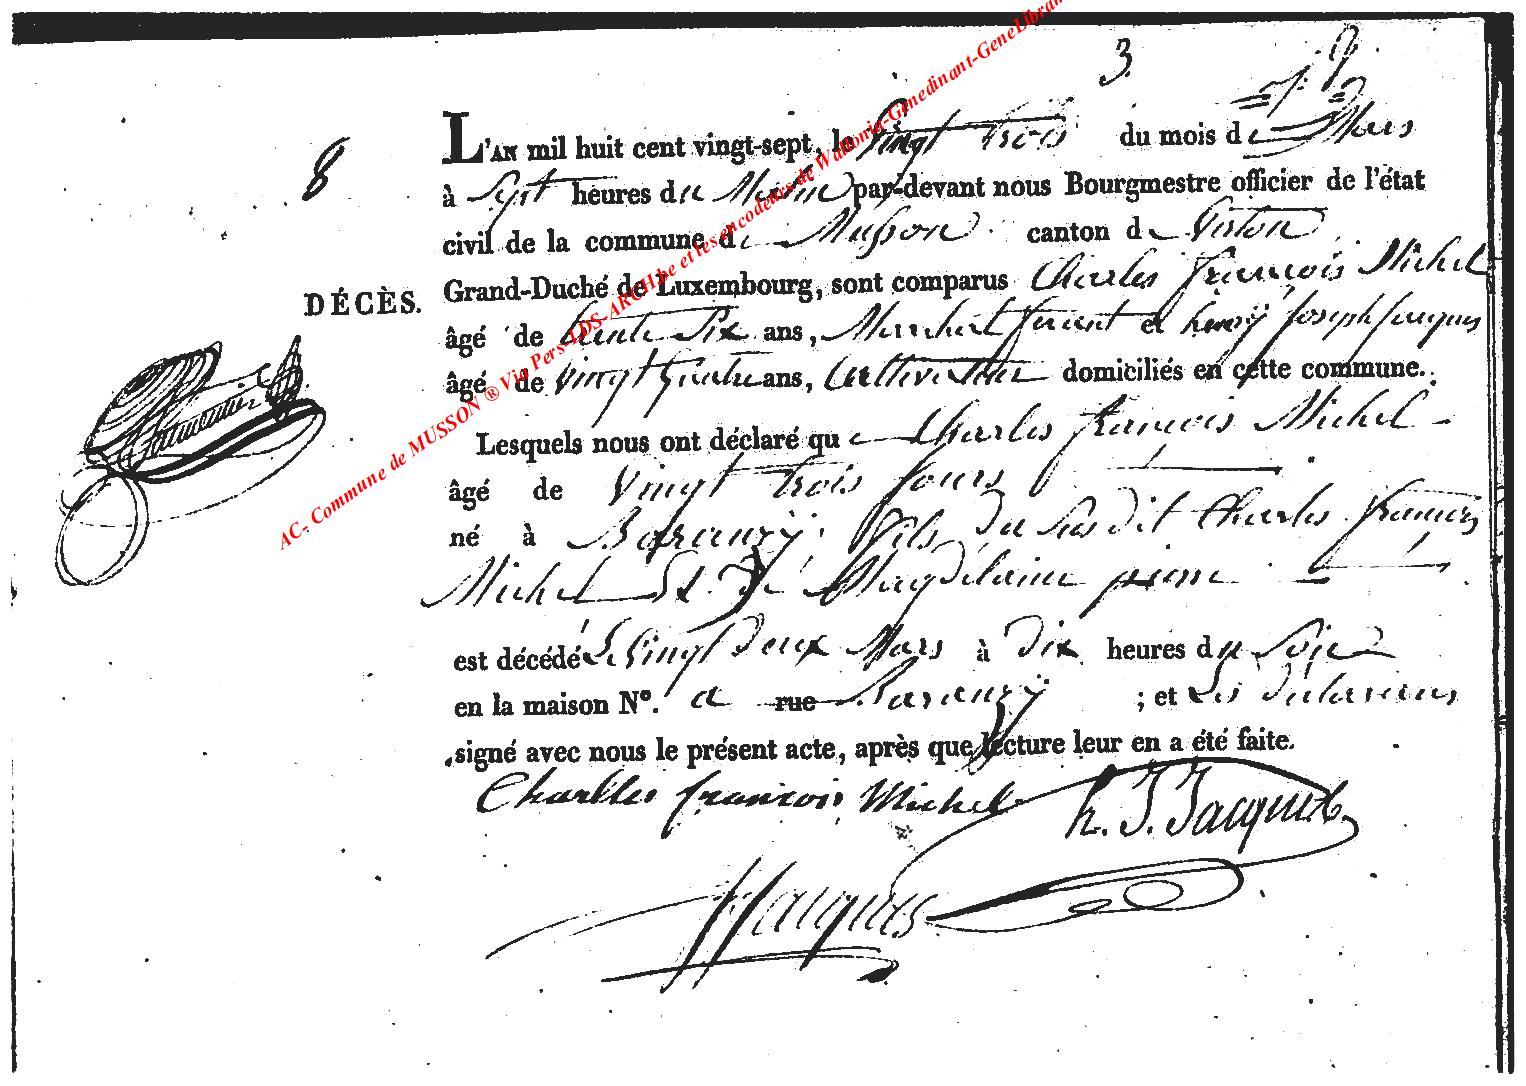 3.
8
L'AN mil huit cent vingt-sept, le Vingt trois du mois de Mars
à Sept heures du Matin par-devant nous Bourgmestre officier de l'état
civil de la commune de Musson canton de Virton
DÉCÈS. Grand-Duché de Luxembourg, sont comparus Charles françois Michel
âgé de trente Six ans, Marechal ferant et henrÿ Joseph Jacques
âgé de Vingt quatre ans, Cultivateur domiciliés en cette commune.
Lesquels nous ont déclaré que Charles françois Michel
âgé de Vingt trois Jours
né à Baranzÿ. fils du Sus dit Charles françois
Michel Et de Magdelaine
est décédé Le Vingt deux Mars à dix heures du Soir
en la maison N°. a rue Baranzÿ ; et Les déclarans
signé avec nous le présent acte, après que lecture leur en a été faite.
Charlles françois Michel h. J. Jacques
Jacques
AC- Commune de MUSSON ® Via Pers-LDS-ARCH.be et les encodeurs de Wallonia-Genedinant-GeneLibran